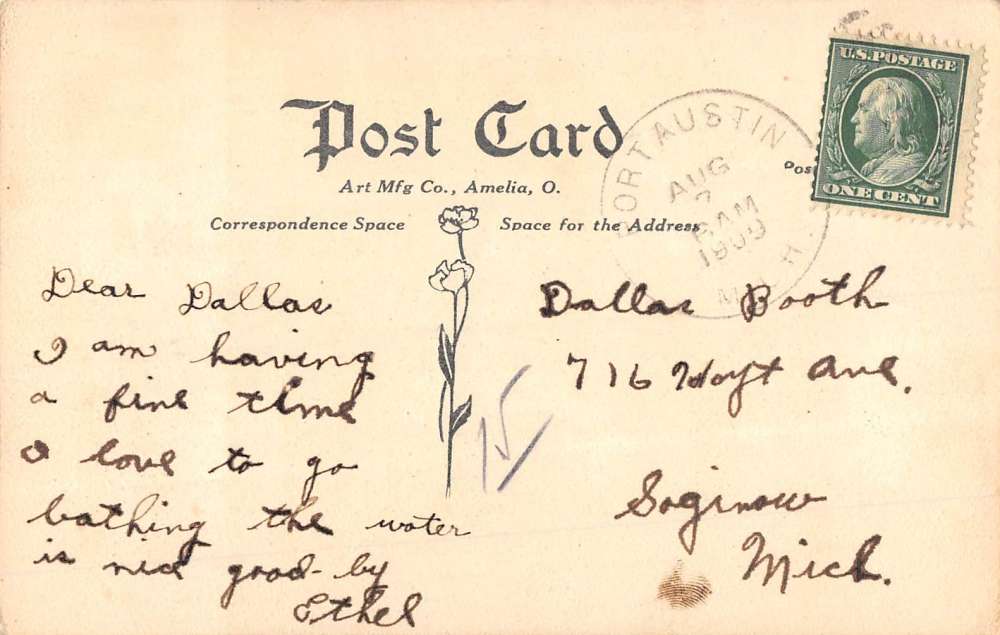 Post Card
Art Mfg Co., Amelia, O.
Correspondence Space
Space for the Address
U.S. POSTAGE
ONE CENT
PORT AUSTIN
AUG
AM
1909
MICH.
Dear Dallas
I am having
a fine time
I love to go
bathing the water
is nice good-by
Ethel
Dallas Booth
716 Hoyt Ave.
Saginaw
Mich.
15